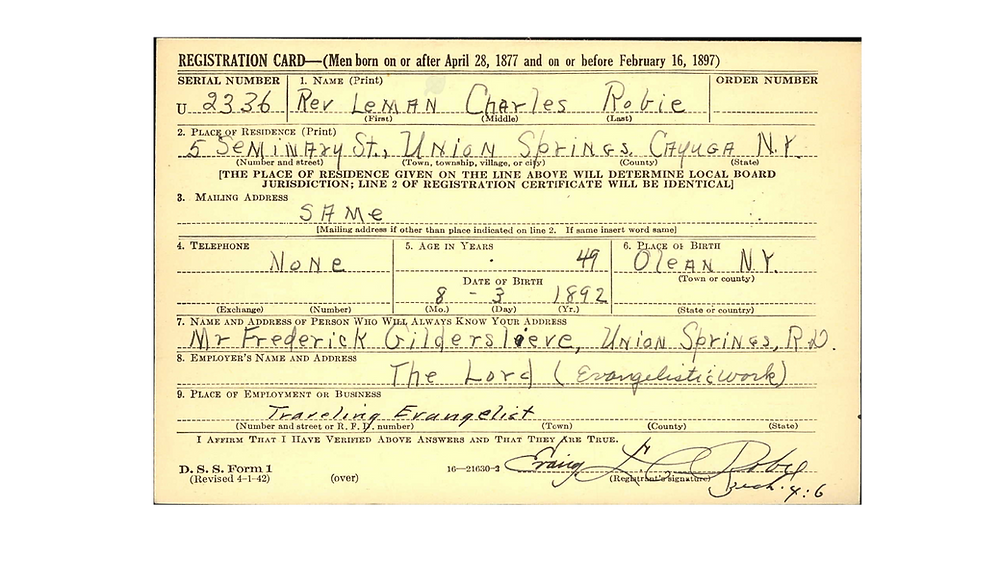 REGISTRATION CARD—(Men born on or after April 28, 1877 and on or before February 16, 1897)
SERIAL NUMBER 1. NAME (Print) ORDER NUMBER
U 2336 Rev Leman Charles Robie
(First) (Middle) (Last)
2. PLACE OF RESIDENCE (Print)
5 Seminary St., Union Springs, Cayuga N.Y.
(Number and street) (Town, township, village, or city) (County) (State)
[THE PLACE OF RESIDENCE GIVEN ON THE LINE ABOVE WILL DETERMINE LOCAL BOARD
JURISDICTION; LINE 2 OF REGISTRATION CERTIFICATE WILL BE IDENTICAL]
3. MAILING ADDRESS
SAMe
[Mailing address if other than place indicated on line 2. If same insert word same]
4. TELEPHONE 5. AGE IN YEARS 6. PLACE OF BIRTH
None 49 Olean N.Y.
(Town or county)
DATE OF BIRTH
8 - 3 1892
(Exchange) (Number) (Mo.) (Day) (Yr.) (State or country)
7. NAME AND ADDRESS OF PERSON WHO WILL ALWAYS KNOW YOUR ADDRESS
Mr Frederick Gildersleeve, Union Springs, R.D.
8. EMPLOYER'S NAME AND ADDRESS
The Lord (Evangelistic work)
9. PLACE OF EMPLOYMENT OR BUSINESS
Traveling Evangelist
(Number and street or R. F. D. number) (Town) (County) (State)
I AFFIRM THAT I HAVE VERIFIED ABOVE ANSWERS AND THAT THEY ARE TRUE.
D. S. S. Form 1 16—21630-3
(Revised 4-1-42) (over) (Registrant's signature)
Zech. 4:6